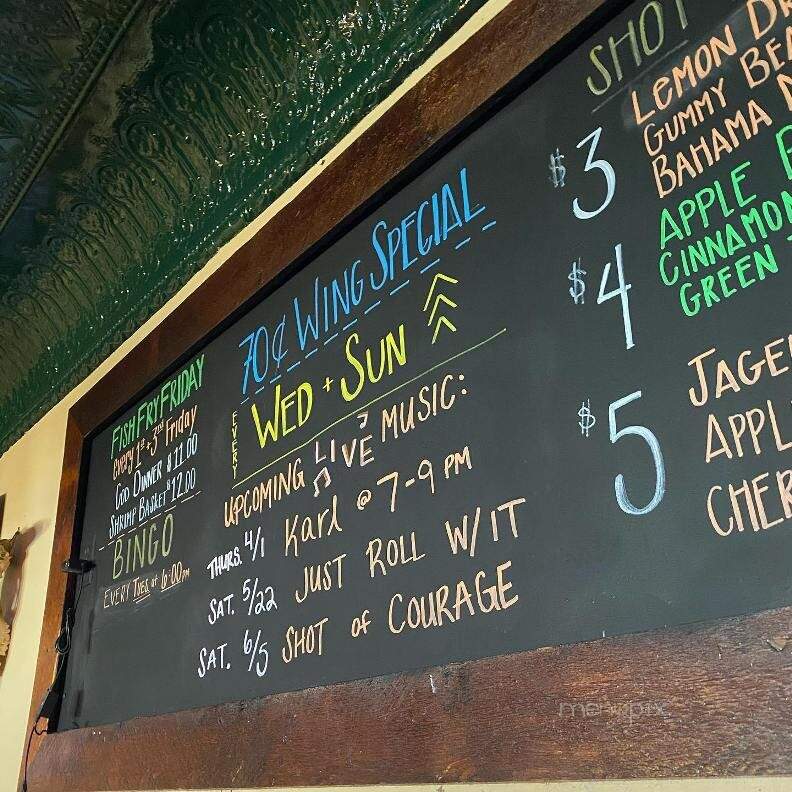 FISH FRY FRIDAY
every 1st + 3rd Friday
COD DINNER $11.00
SHRIMP BASKET $12.00
BINGO
EVERY TUES. at 6:00PM
70¢ WING SPECIAL
EVERY
WED + SUN
UPCOMING LIVE MUSIC:
THURS. 4/1 Karl @ 7-9 PM
SAT. 5/22 JUST ROLL W/IT
SAT. 6/5 SHOT of COURAGE
SHOT
$3
LEMON
GUMMY
BAHAMA
$4
APPLE
CINNAMON
GREEN
$5
JAGE
APPL
CHER
menupix